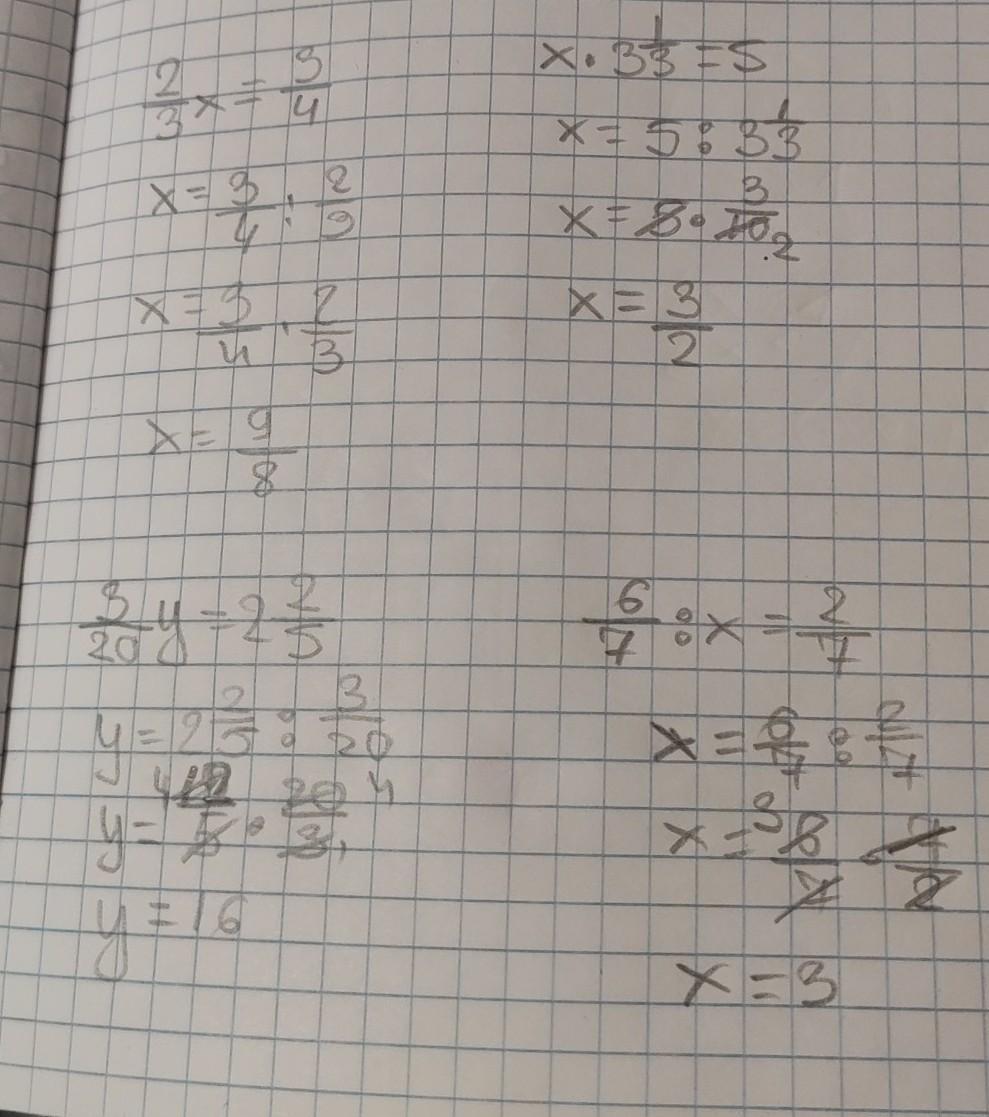 2/3 x = 3/4
x = 3/4 : 2/3
x = 3/4 · 2/3
x = 9/8
x · 3 1/3 = 5
x = 5 : 3 1/3
x = 5 · 3/10 2
x = 3/2
3/20 y = 2 2/5
y = 2 2/5 : 3/20
y = 4 12/5 · 20/3 4
y = 16
6/7 : x = 2/7
x = 6/7 : 2/7
x = 3 6/7 · 7/2
x = 3